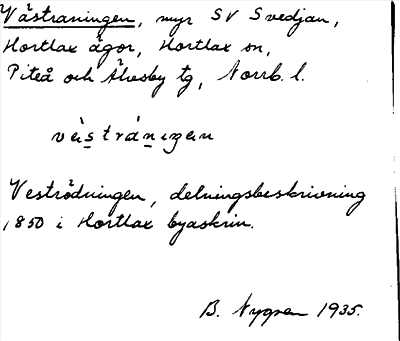 Västraningen, myr SV Svedjan,
Hortlax ägor, Hortlax sn,
Piteå och Älvsby tg, Norrb. l.
västránıŋen
Vesträdningen, delningsbeskrivning
1850 i Hortlax byaskrin.
B. Nygren 1935.